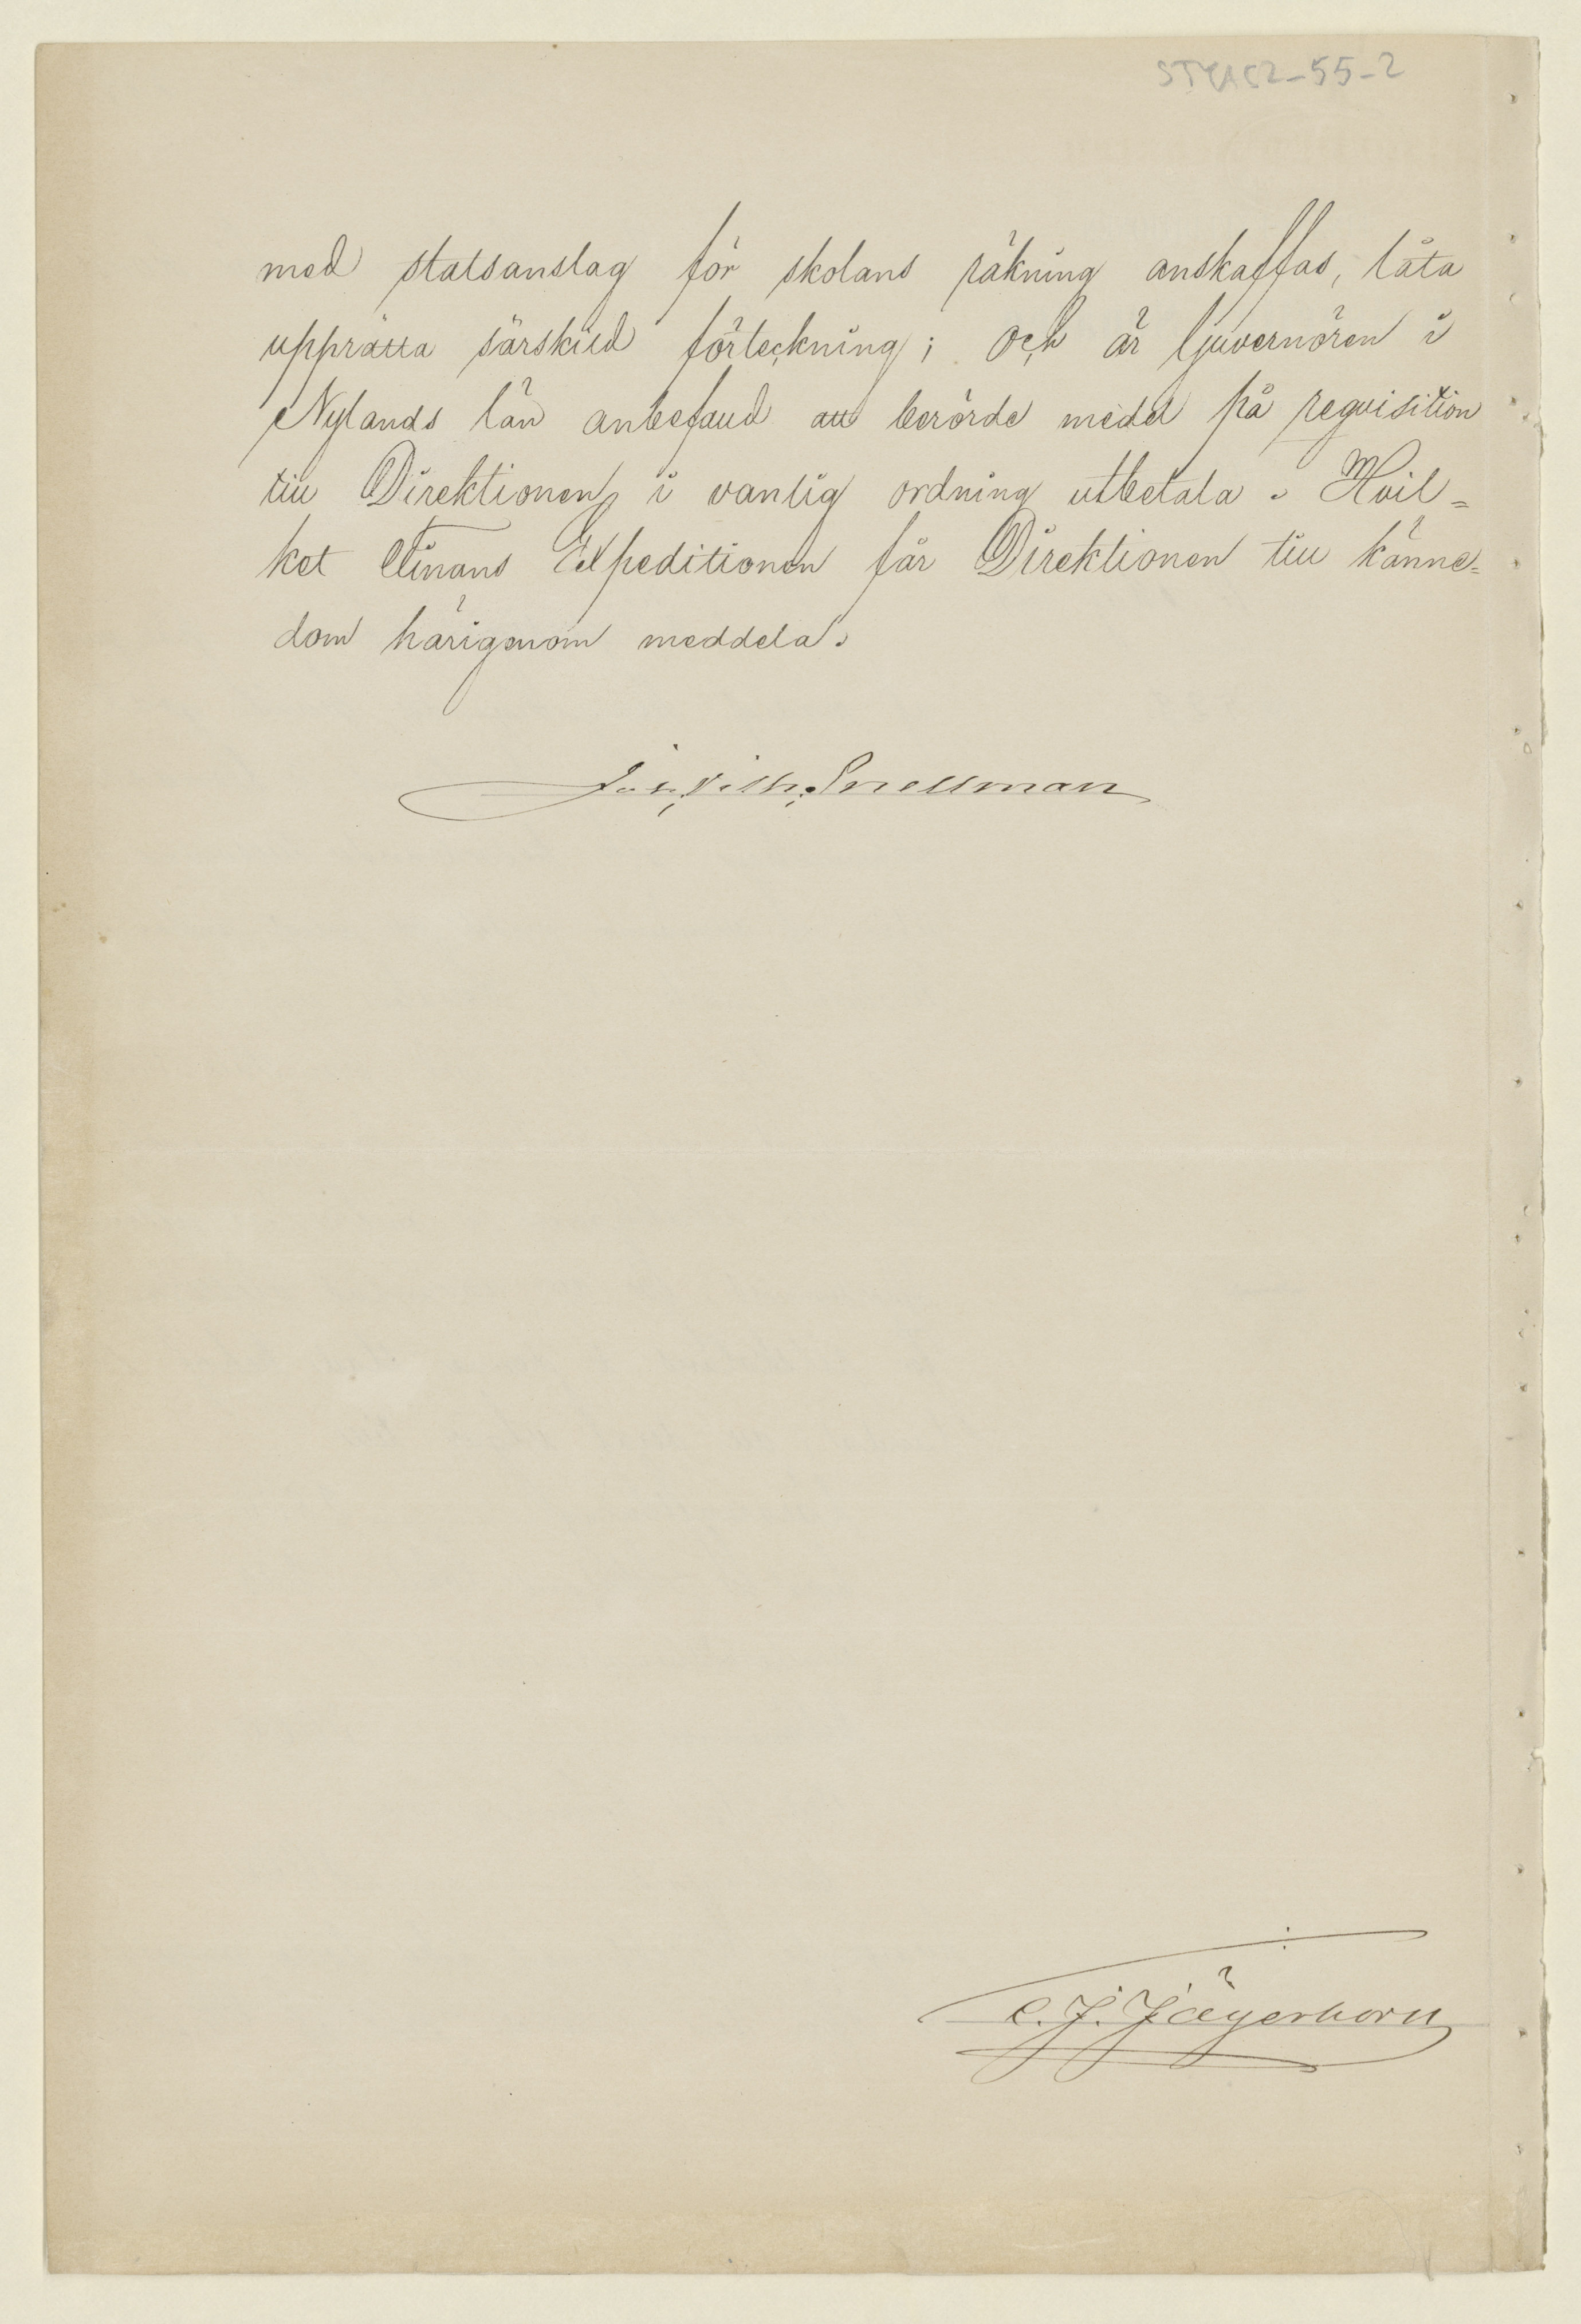 STYA52-55-2
med statsanslag för skolans räkning anskaffas, låta
upprätta särskild förteckning; och är Guvernören i
Nylands län anbefald att berörde medel på reqvisition
till Direktionen i vanlig ordning utbetala. Hvil=
ket Finans Expeditionen får Direktionen till känne=
dom härigenom meddela.
Joh. Vilh. Snellman
C. J. Jägerhorn